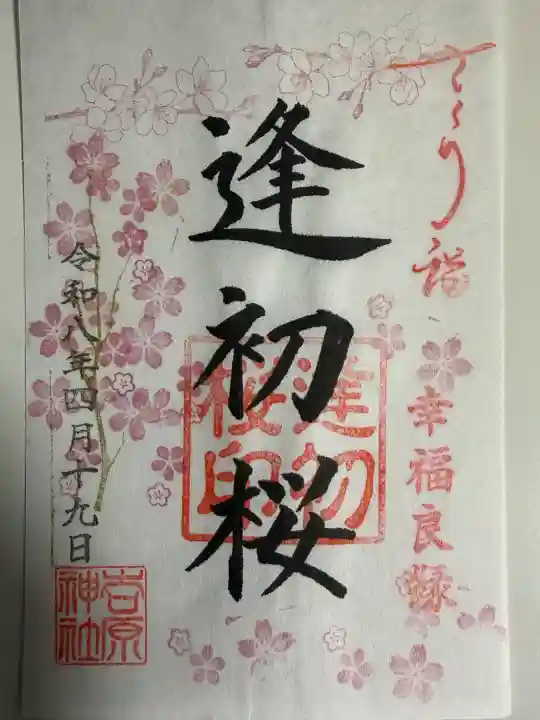 幸福良縁
逢初桜
逢初
桜印
令和八年四月十九日
吉原
神社